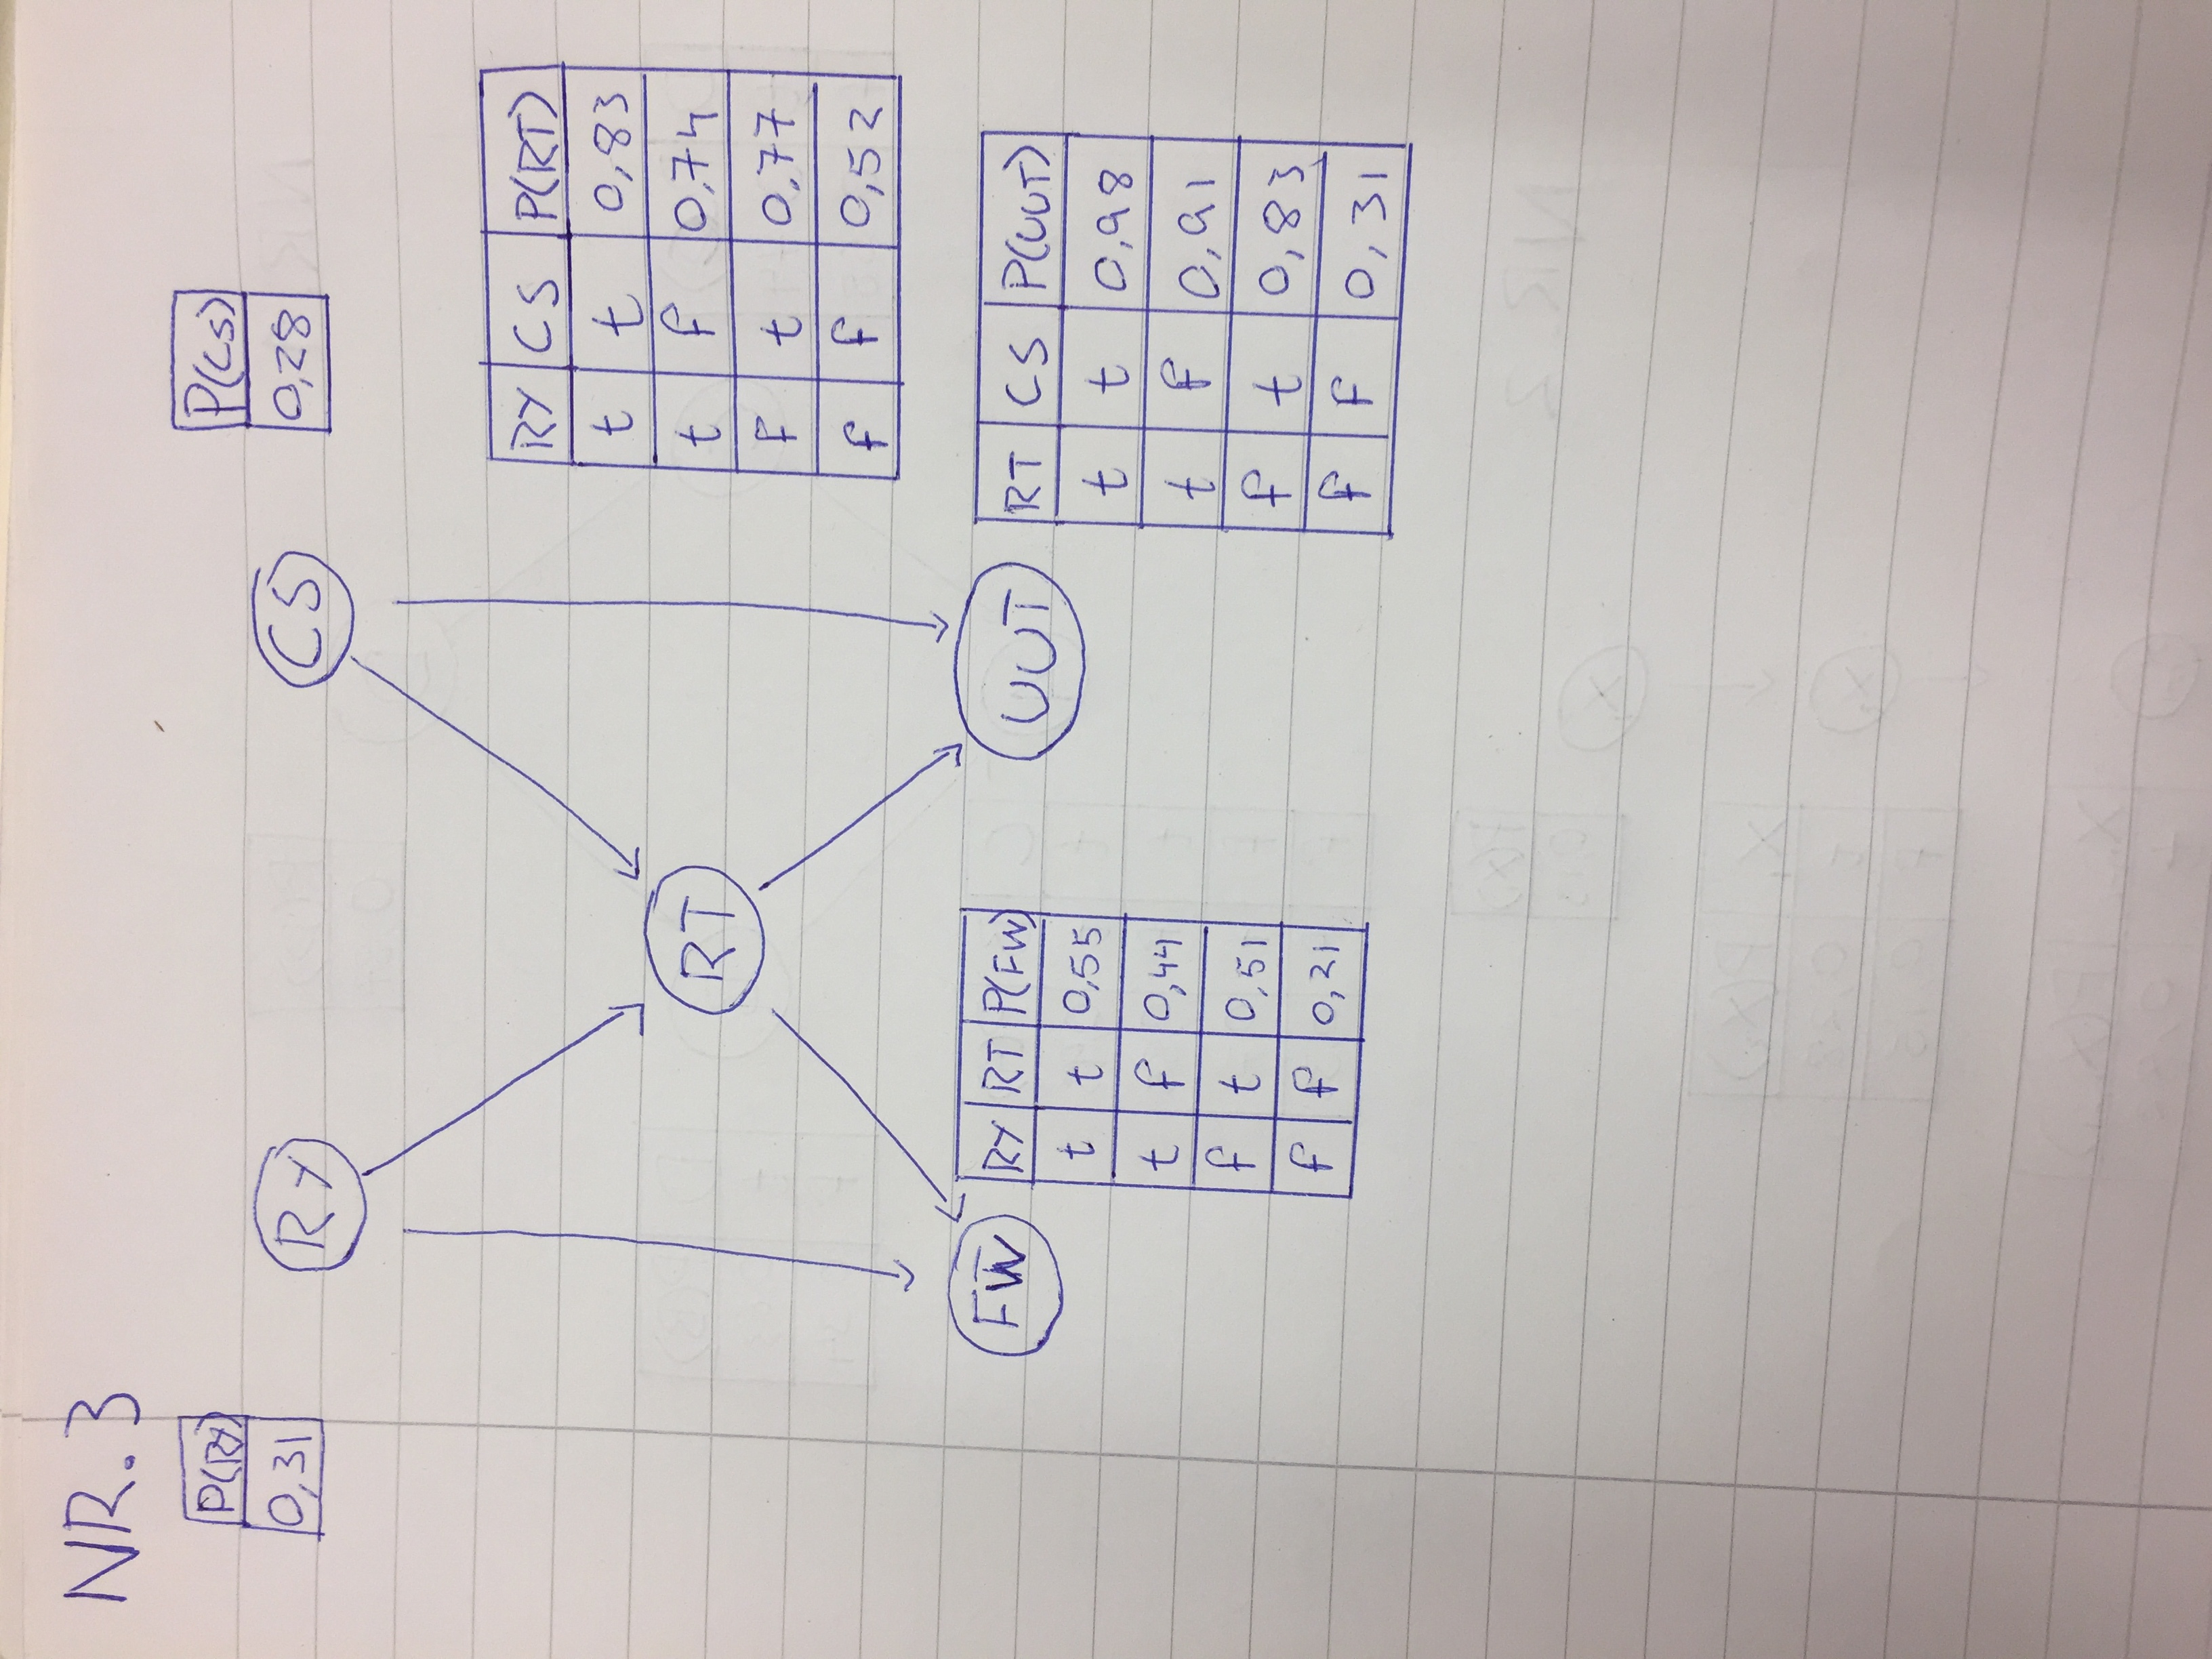 NR. 3
P(RY)
0,31
RY
CS
P(CS)
0,28
RY CS P(RT)
t t 0,83
t f 0,74
f t 0,77
f f 0,52
RT
FW
RY RT P(FW)
t t 0,55
t f 0,44
f t 0,51
f f 0,21
UUT
RT CS P(UUT)
t t 0,98
t f 0,91
f t 0,83
f f 0,31